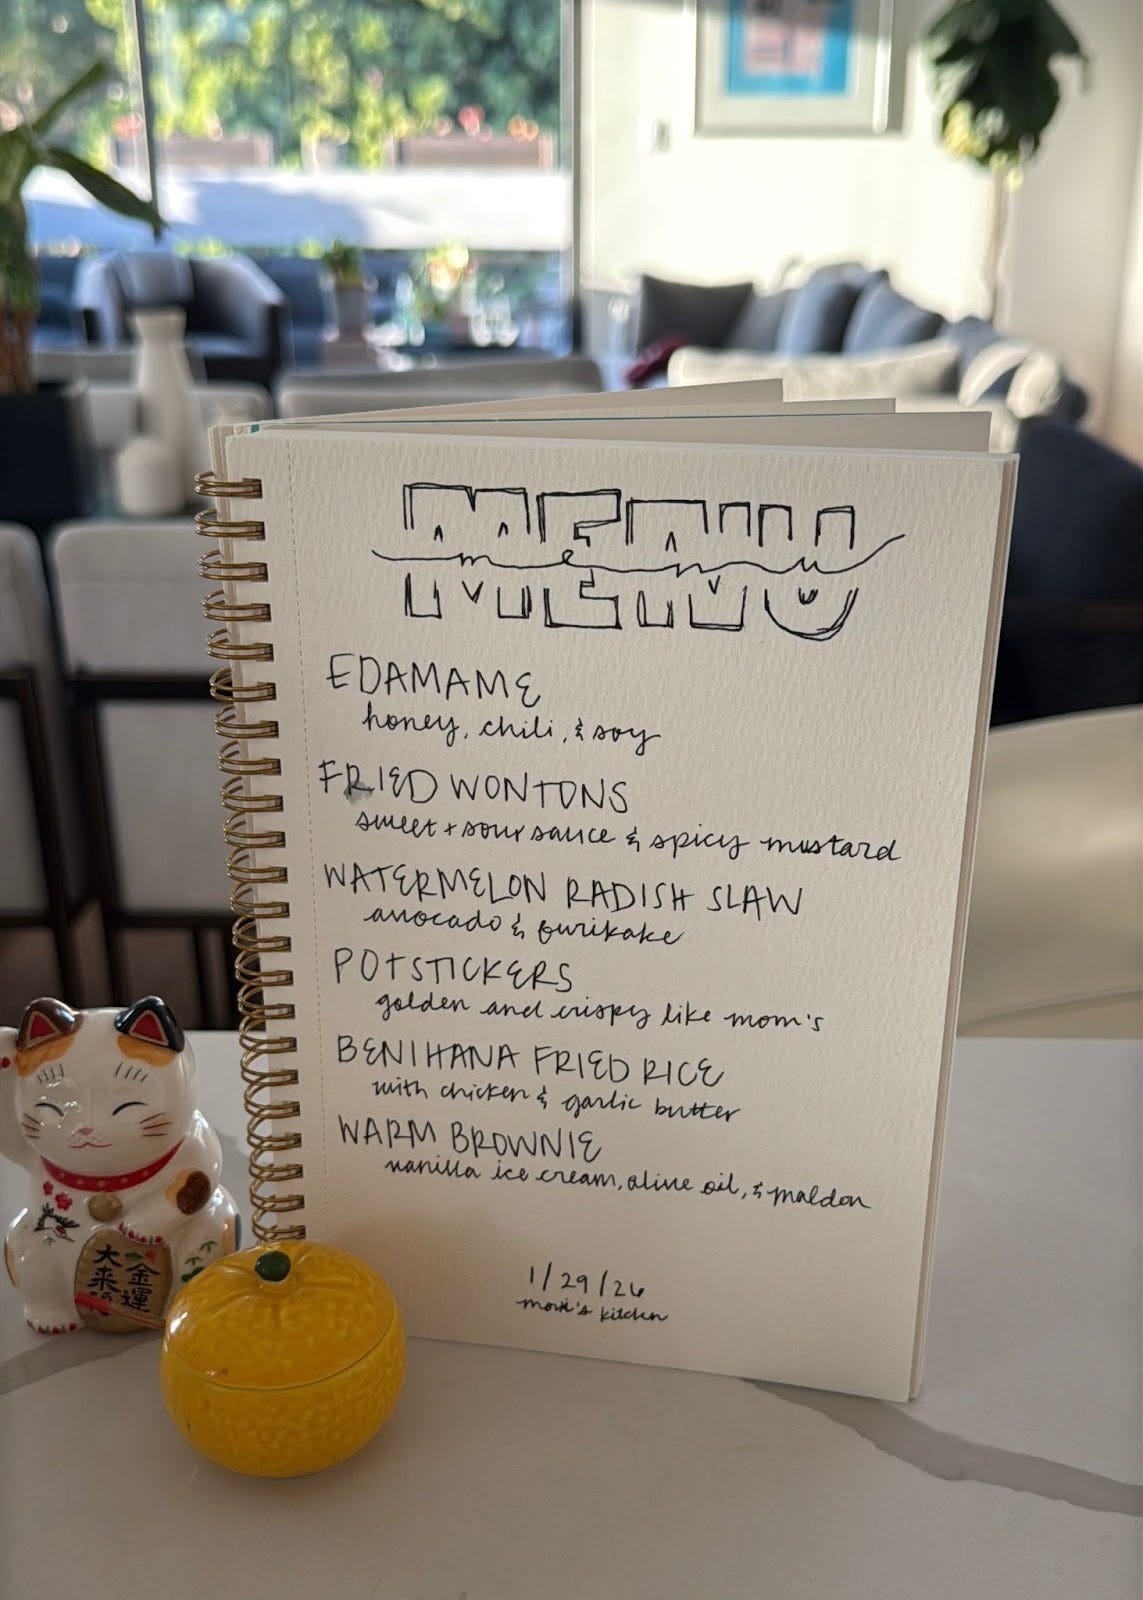 MENU
menu
EDAMAME
honey, chili, & soy
FRIED WONTONS
sweet + sour sauce & spicy mustard
WATERMELON RADISH SLAW
avocado & furikake
POTSTICKERS
golden and crispy like mom's
BENIHANA FRIED RICE
with chicken & garlic butter
WARM BROWNIE
vanilla ice cream, olive oil, & maldon
1/29/26
kitchen
大来
金運